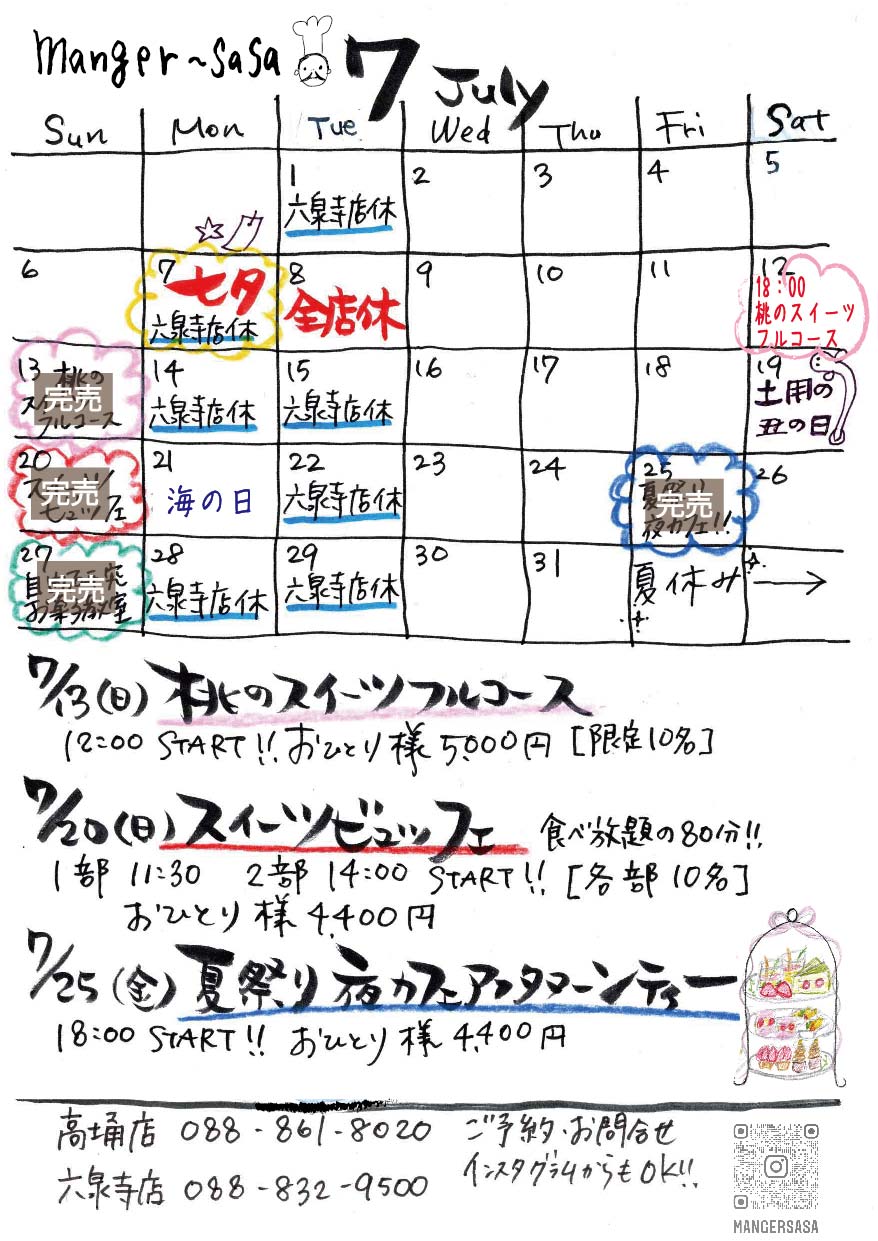 manger~sasa 7 July
Sun Mon Tue Wed Thu Fri Sat
1 2 3 4 5
六泉寺店休
6 7 8 9 10 11 12
七夕 全店休 18:00
六泉寺店休 桃のスイーツ
フルコース
13 14 15 16 17 18 19
桃の 土用の
完売 六泉寺店休 六泉寺店休 丑の日
フルコース
20 21 22 23 24 25 26
完売 海の日 六泉寺店休 完売
夜カフェ!!
27 28 29 30 31
完売 六泉寺店休 六泉寺店休 夏休み →
お菓子教室
7/13(日) 桃のスイーツフルコース
12:00 START!! おひとり様 5,000円 [限定10名]
7/20(日) スイーツビュッフェ 食べ放題の80分!!
1部 11:30 2部 14:00 START!! [各部10名]
おひとり様 4,400円
7/25(金) 夏祭り夜カフェアフタヌーンティー
18:00 START!! おひとり様 4,400円
高埇店 088-861-8020 ご予約・お問合せ
六泉寺店 088-832-9500 インスタグラムからもOK!!
MANGERSASA